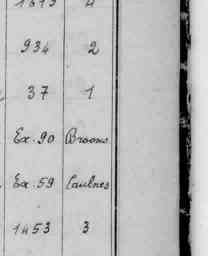 934 2
37 1
Ex. 90 Broons
Ex. 59 Caulnes
1453 3